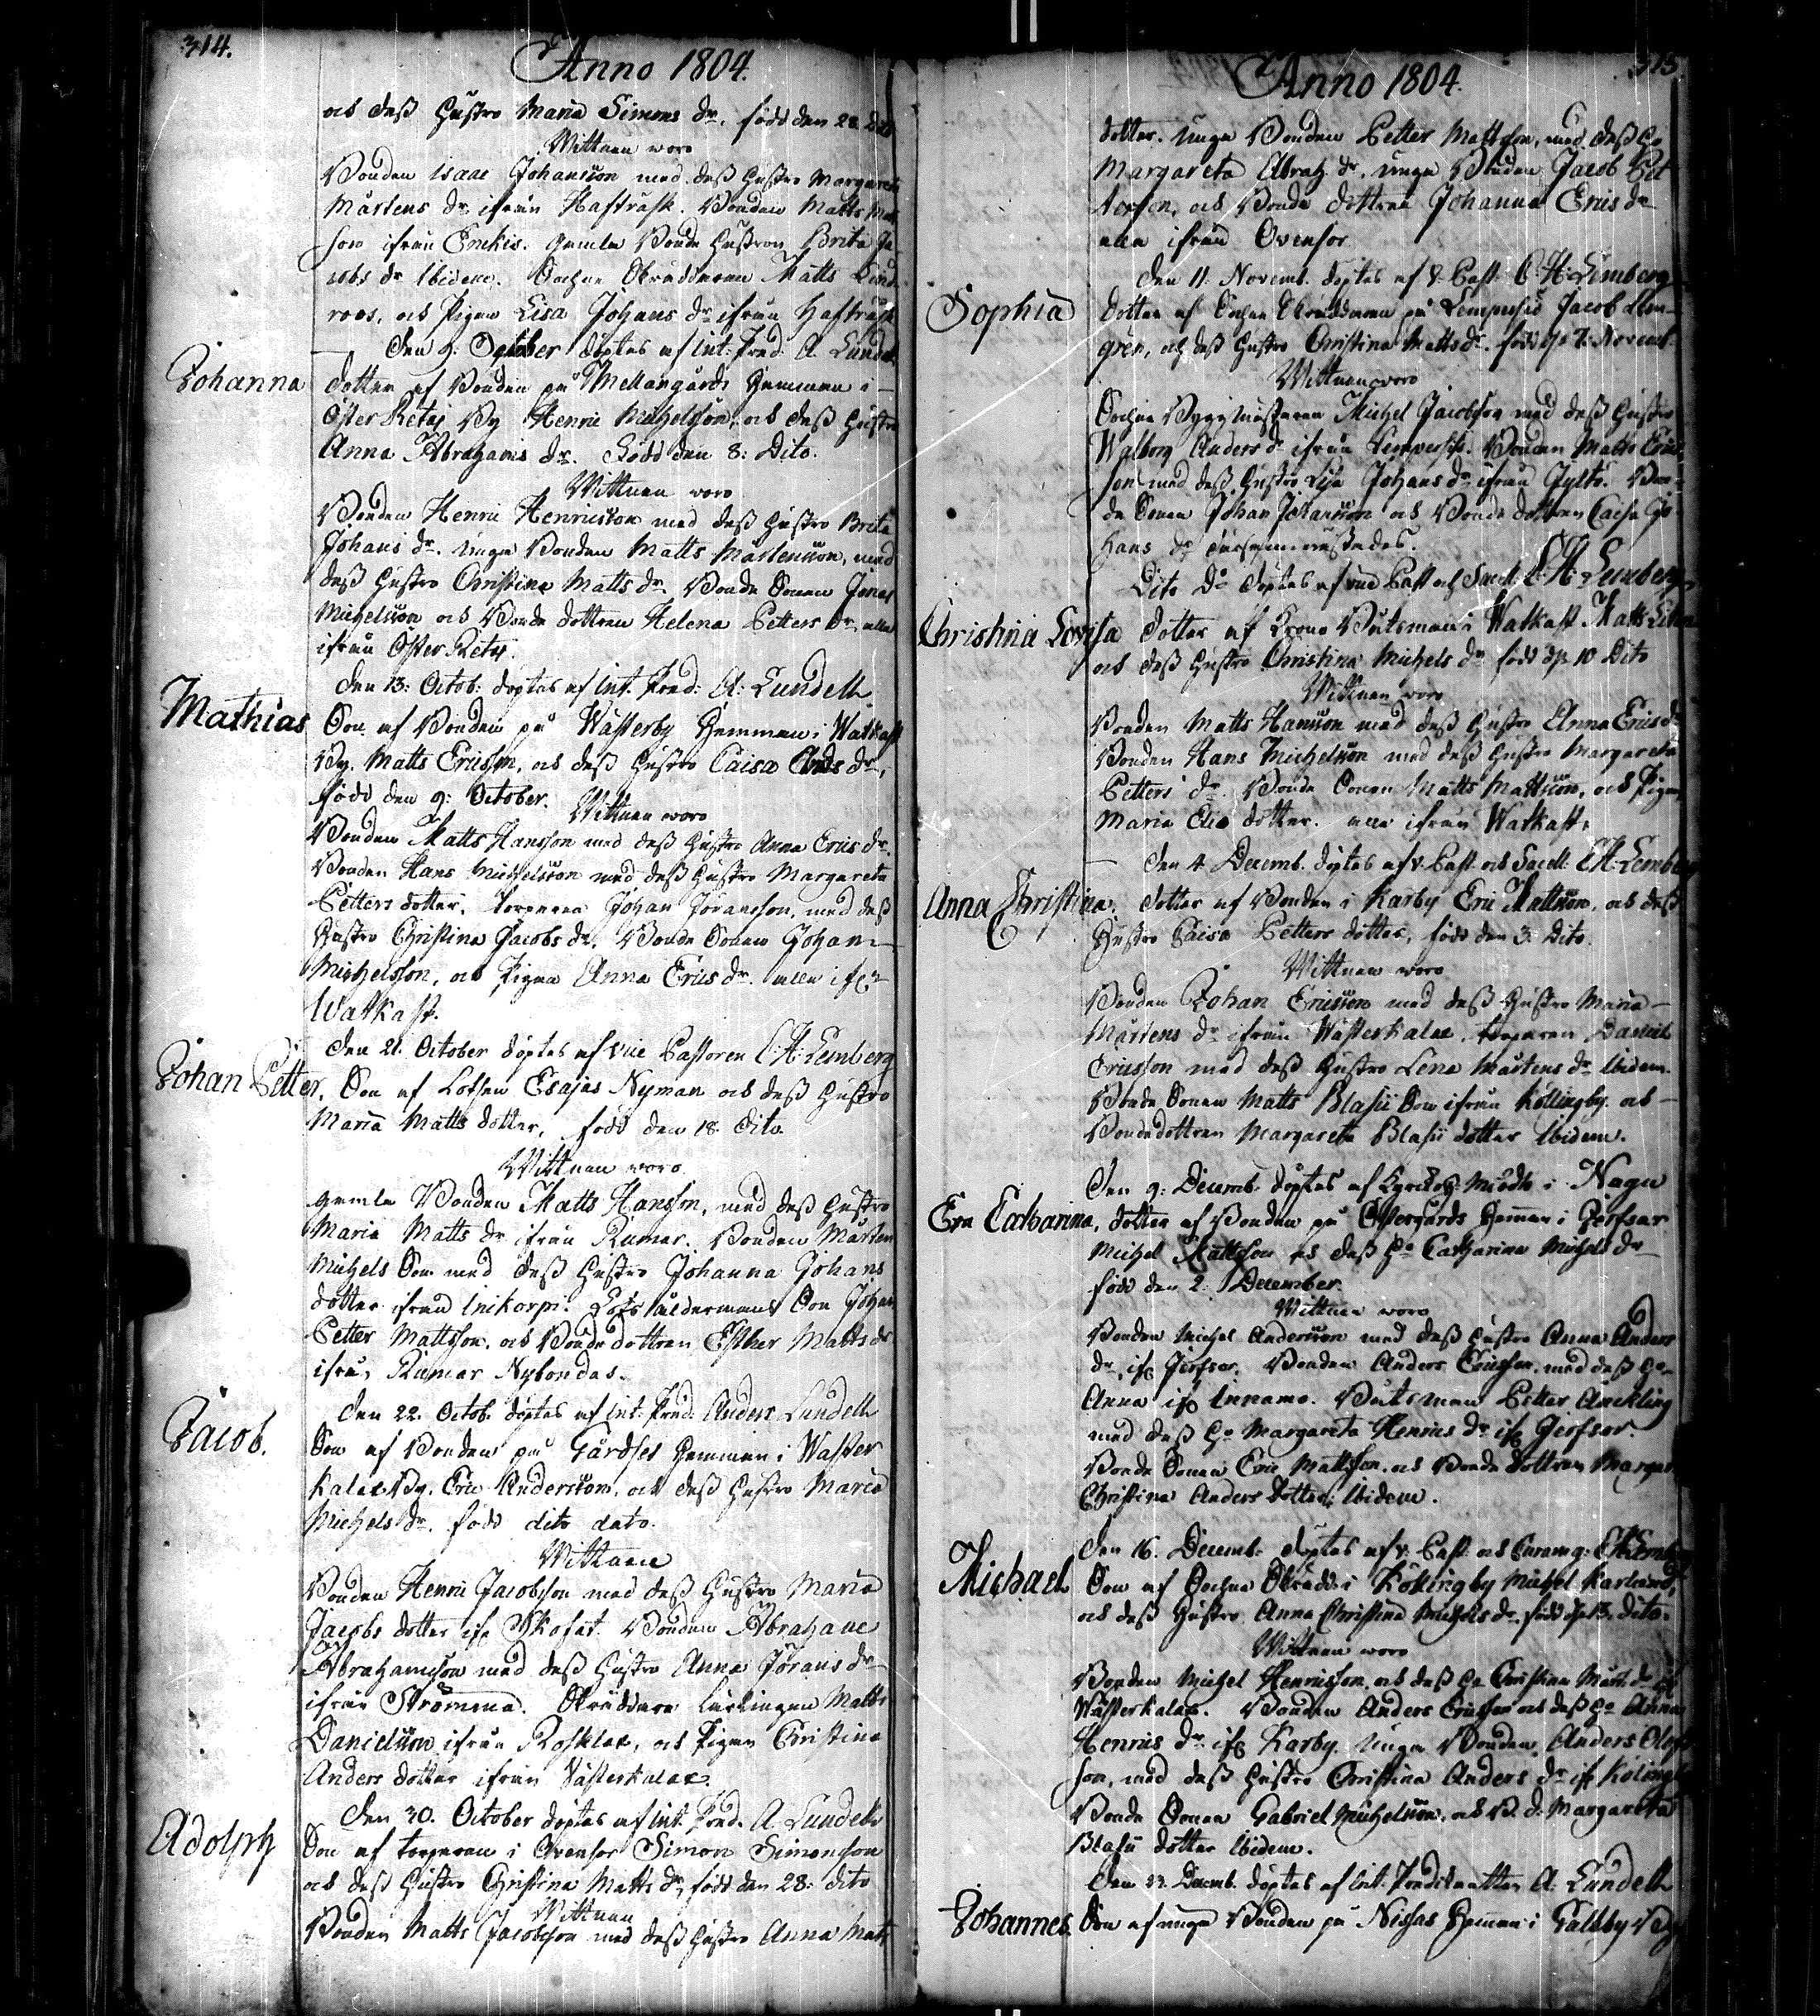 314.
Anno 1804.
och dess Hustro Maria Simons dr. född den 28 Dito
Wittnen woro
Bonden Isaac Johansson med dess Hustro Margareta
Mårtens dr ifrån Hafträsk. Bonden Matts
son ifrån Enekis. gamla Bonde Hustron Brita Ja
cobs dr Ibidem. Sochne Skräddaren Matts Lind
roos, och Pigan Lisa Johans dr ifrån Hafträsk
Den 9: October döptes af Int: Pred: A. Lundell
Johanna
dotter af Bonden på Mellangårds Hemman i
Öster Retais By Henric Michelsson, och dess Hustro
Anna Abrahams dr. Född den 8: Dito.
Wittnen woro
Bonden Henric Henricsson med dess Hustro Brita
Johans dr. unga Bonden Matts Mårtensson, med
dess Hustro Christina Matts dr. Bonde Sonen Jonas
Michelsson och Bonde dottren Helena Petters dr, alla
ifrån Öster Retais.
Den 13: Octob: döptes af Int. Pred: A: Lundell
Mathias
Son af Bonden på Wästerby Hemman i Watkast
By. Matts Ericsson, och dess Hustro Caisa Ands dr,
född den 9: October.
Wittnen woro
Bonden Matts Hansson med dess Hustro Anna Erics dr.
Bonden Hans Michelsson med dess Hustro Margareta
Petters dotter. torparen Johan Joransson, med dess
Hustro Christina Jacobs dr. Bonde Sonen Johan
Michelsson, och Pigan Anna Erics dr. alla ifrn
Watkast.
Den 21. October döptes af Vice Pastoren C. H: Lemberg
Johan Petter.
Son af Lotsen Esajas Nyman och dess Hustro
Maria Matts dotter, född den 18. dito.
Wittnen woro
gamla Bonden Matts Hansson, med dess Hustro
Maria Matts dr ifrån Rumar. Bonden Mårten
Michels Son med dess Hustro Johanna Johans
dotter ifrån Inikorpi. Lots åldermans Son Johan
Petter Mattsson, och Bonde dottren Esther Matts dr
ifrån Rumar Nybondas.
Den 22. Octob. döptes af Int. Pred. Anders Lundell
Jacob.
Son af Bonden på Gårdses Hemman i Wäster
Kalax By. Eric Andersson, och dess Hustro Maria
Michels dr. född dito dato.
Wittnen
Bonden Henric Jacobsson med dess Hustro Maria
Jacobs dotter ifr Skofat. Bonden Abraham
Abrahamsson med dess Hustro Anna Jörans dr
ifrån Strömma. Skräddare Lärlingen Matts
Danielsson ifrån Rosklax, och Pigan Christina
Anders dotter ifrån Västerkalax.
Den 30. October döptes af Int. Pred. A Lundell
Adolph
Son af torparen i Ovensor Simon Simonsson
och dess Hustro Christina Matts dr, född den 28: dito
Wittnen
Bonden Matts Jacobsson med dess Hustro Anna Matts
315
Anno 1804.
dotter. Unga Bonden Petter Mattsson, med dess Ho
Margareta Abrah. dr. unga Bonden Jacob Pet
tersson, och Bonde dottren Johanna Erics dr
alla ifrån Ovensor
Den 11. Novemb. döptes af V. Past. C. H: Lemberg
Sophia
dotter af Sochne Skräddaren på Lempersjö Jacob Alm-
gren, och dess Hustro Christina Matts dr. född d. 7. Novemb.
Wittnen woro
Sochne Byggmästaren Michel Jacobsson med dess Hustro
Walborg Anders dr ifrån Lempersjö. Bonden Matts Erics
son med dess Hustro Lisa Johans dr ifrån Gyltö. Bon
de Sonen Johan Johansson och Bonde dottren Caisa Jo
hans dr
Dito Do döptes af vice Past och Sacell. C. H: Lemberg
Christina Lovisa
dotter af Krono Båtsman i Watkast Matts
och dess Hustro Christina Michels dr född d. 10 Dito
Wittnen woro
Bonden Matts Hansson med dess Hustro Anna Erics dr
Bonden Hans Michelsson med dess Hustro Margareta
Petters dr. Bonde Sonen Matts Mattsson, och Pigan
Maria Elis dotter. alla ifrån Watkast.
Den 4 Decemb. döptes af v. Past. och Sacell. C. H: Lemberg
Anna Christina,
dotter af Bonden i Karby Eric Mattsson, och dess
Hustro Caisa Petters dotter, född den 3. dito.
Wittnen woro
Bonden Johan Ericsson med dess Hustro Maria
Mårtens dr ifrån Wästerkalax. torparen Daniel
Ericsson med dess Hustro Lena Mårtens dr Ibidem.
Bonde Sonen Matts Blasii Son ifrån Köllingby. och
Bondedottren Margareta Blasii dotter Ibidem.
Den 9: Decemb. döptes af i Nagu
Eva Catharina,
dotter af Bonden på Östergårds Heman i Gerfsar
Michel Mattsson och dess Ho Catharina Michels dr
född den 2: December.
Wittnen woro
Bonden Michel Andersson med dess Hustro Anna Anders
dr, ifr Jerfsar. Bonden Anders Ericsson, med dess Ho
Anna ifr Innamo. Båtsman Petter Anckling
med dess Ho Margareta Henrics dr ifr Gerfsar.
Bonde Sonen Eric Mattsson. och Bonde dottren Margar
Christina Anders dotter, Ibidem.
Den 16. Decemb: döptes af v. Past. och C. H. Lemberg
Michael
Son af Sochne Skrädd: i Köllingby Michel Karlund,
och dess Hustro Anna Christina Michels dr. född d. 13. dito.
Wittnen woro
Bonden Michel Henricsson, och dess Ho Christina Mårt. dr ifr
Wästerkalax. Bonden Anders Ericsson och dess Ho Anna
Henrics dr ifr Karby. Unga Bonden Anders Olofs
son, med dess Hustro Christina Anders dr ifr Kölingb
Bonde Sonen Gabriel Michelsson, och B. d. Margareta
Blasii dotter Ibidem.
Den 23. Decemb. döptes af Int. A. Lundell
Johannes.
Son af unga Bonden på Nissas Heman i Galtby By